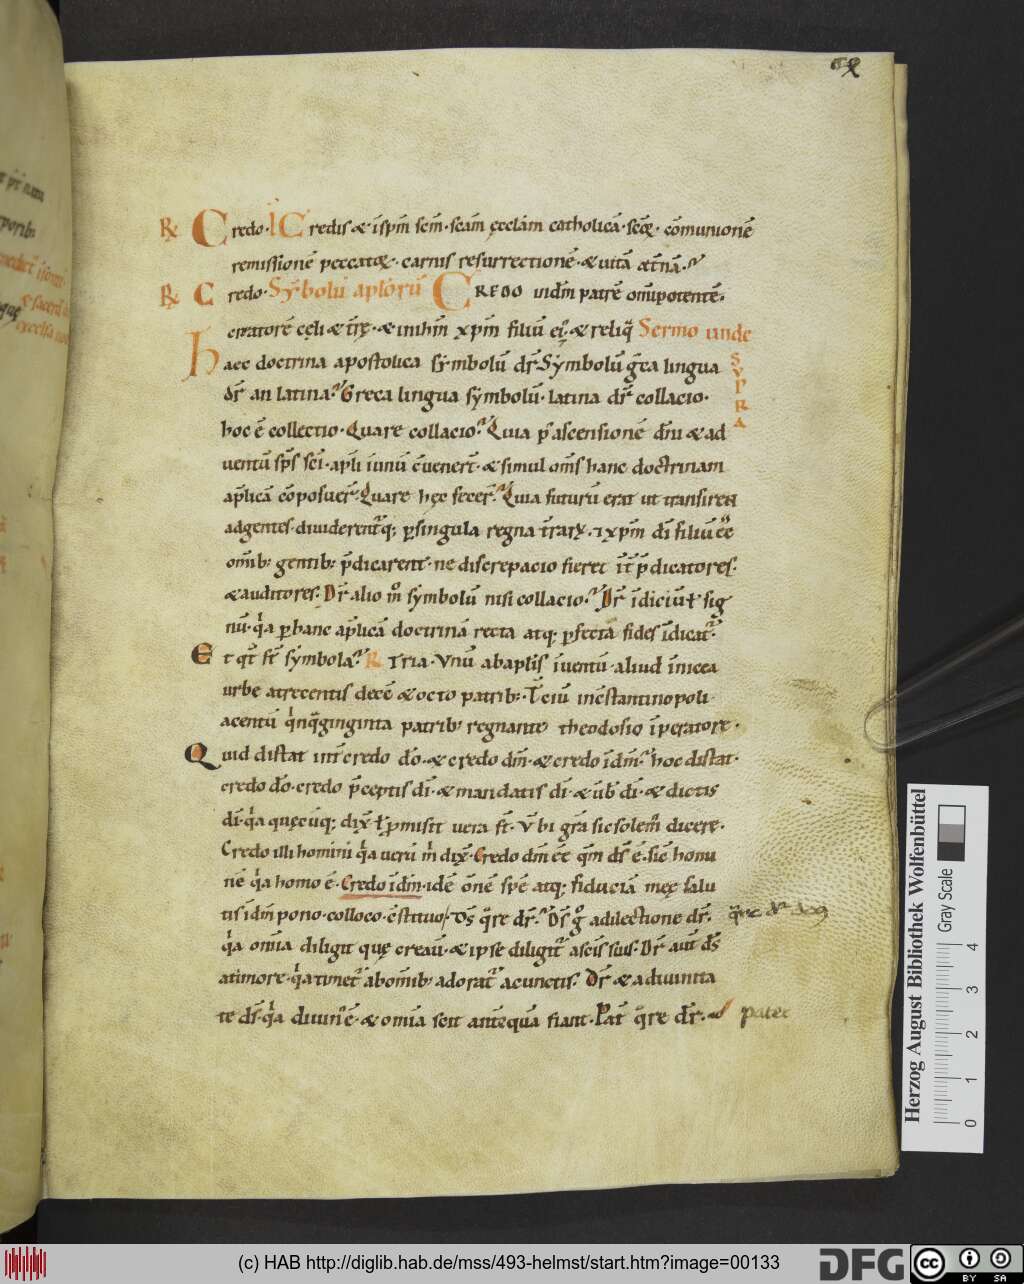 R Credo· I Credis & īspm̄ scm̄· scam̄ ęcclam̄ catholicā· scōꝝ cōmunionē
remissionē peccatoꝝ· carnis resurrectionē· & uitā æt̄nā·
R Credo· Sẏmbolū aplorū CREDO indm̄ patrē om̄ipotentē·
creatorē cęli & tr̄ę· & inihm̄ xp̄m filiū ei⁹· & reliq̄ Sermo unde SVPRA
Haec doctrina apostolica sẏmbolū dr̄· Sẏmbolū gr̄ca lingua
dr̄ an latina? Greca lingua sẏmbolū· latina dr̄ collacio·
hoc ē collectio· Quare collacio? Quia p̄ ascensionē dn̄i & ad
uentū sp̄s sci· apl̄i iunū cuenert̄· & simul om̄s hanc doctrinam
ap̄licā cōposuer̄· Quare hęc fecer̄? Quia futurū erat ut transirent
adgentes· diuiderent̄q; ꝑsingula regna tr̄arꝝ· & xp̄m di filiū eē
om̄ib; gentib; p̄dicarent· ne discrepacio fieret int̄ p̄dicatores·
& auditores· Dr̄ alio m̊ sẏmbolū nisi collacio? Dr̄ īdiciū ł sig
nū· q̇a ꝑhanc ap̄licā doctrinā recta atq; ꝑfecta fides īdicat̄·
Et qt̄ st̄ sẏmbola? R Tria· Vnū abaplis īuentū· aliud īnicea
urbe atrecentis decē & octo patrib;· T̄ciū incstantinopoli
acentū q̇nq̄ginginta patrib; regnante theodosio īperatore·
Quid distat int̄ credo dō· & credo dm̄· & credo īdm̄? hoc distat·
credo dō· credo p̄ceptis di· & mandatis di· & ūb di· & dictis
di· q̇a quęcūq; dix̄ ł ꝓmisit uera st̄· Vbi gr̄a sic solem⁹ dicere·
Credo illi homini q̇a uerū m̄ dix̄· Credo dm̄ eē qm̄ ds̄ ē· sic̄ honu
nē q̇a homo ē· Credo īdm̄· idē ōnē spē atq; fiduciā meę salu
tis īdm̄ pono· colloco· cstituo· Ds̄ q̄re dr̄? Ds̄ g̊ adilectione dr̄· q̄re
q̇a omīa diligit quę creau̅· & ipse diligit̄ ascis suis· Dr̄ aut̄ ds̄
atimore· q̇a timet̄ abom̄ib; adorat̄ acunctis· Dr̄ & adiuinita
te ds̄· q̇a diuin⁹ē· & omīa scit anteqūa fiant· Pat̄ q̄re dr̄· pater
Herzog August Bibliothek Wolfenbüttel
Gray Scale
0 1 2 3 4
(c) HAB http://diglib.hab.de/mss/493-helmst/start.htm?image=00133
DFG
cc BY SA